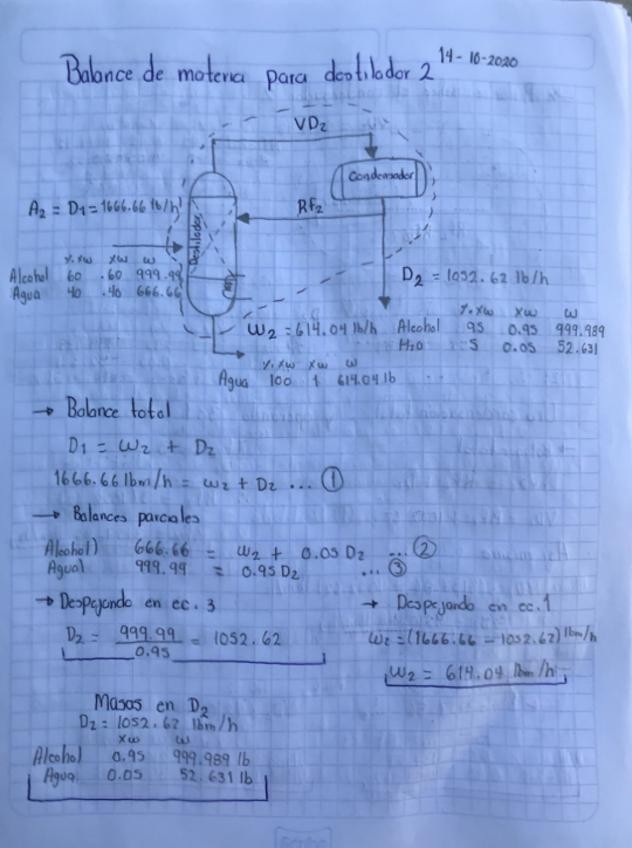 14-10-2020
Balance de materia para destilador 2
VD₂
Condensador
A₂ = D₁ = 1666.66 lb/h
RF₂
Destilador
%xw xw w
Alcohol 60 .60 999.99
Agua 40 .40 666.66
D₂ = 1052.62 lb/h
%xw xw w
W₂ = 614.04 lb/h Alcohol 95 0.95 999.989
H₂O 5 0.05 52.631
%xw xw w
Agua 100 1 614.04 lb
→ Balance total
D₁ = W₂ + D₂
1666.66 lbm/h = W₂ + D₂ ... ①
→ Balances parciales
Alcohol) 666.66 = W₂ + 0.05 D₂ ... ②
Agua) 999.99 = 0.95 D₂ ... ③
→ Despejando en ec. 3
D₂ = 999.99 / 0.95 = 1052.62
→ Despejando en ec. 1
W₂ = (1666.66 - 1052.62) lbm/h
W₂ = 614.04 lbm/h
Masas en D₂
D₂ = 1052.62 lbm/h
xw w
Alcohol 0.95 999.989 lb
Agua 0.05 52.631 lb